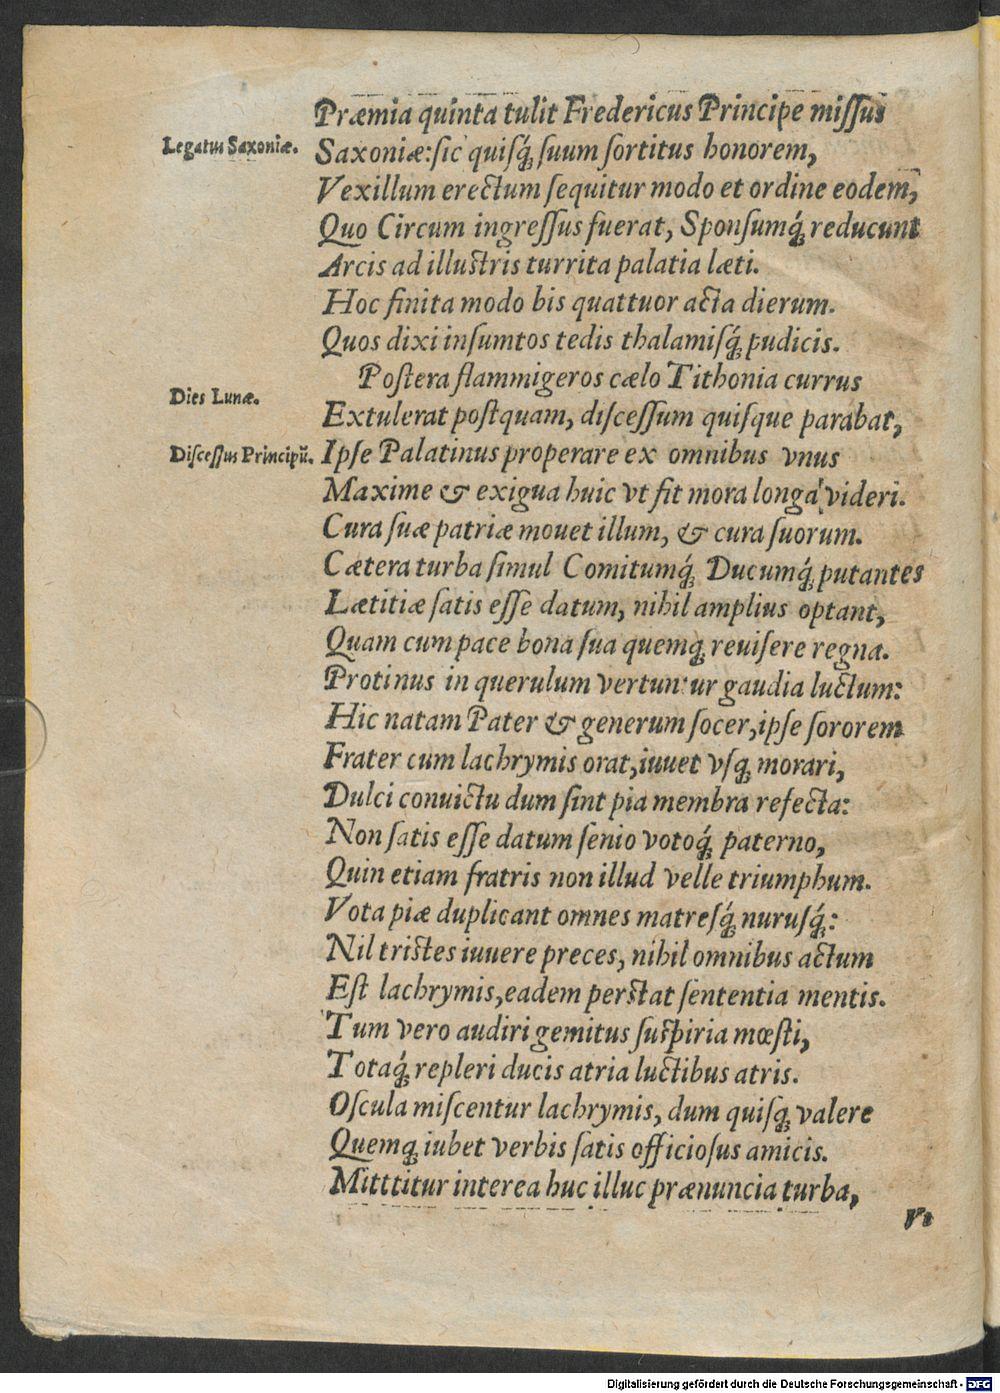 Præmia quinta tulit Fredericus Principe miſſus
Legatus Saxoniæ.
Saxoniæ: ſic quiſq́; ſuum ſortitus honorem,
Vexillum erectum ſequitur modo et ordine eodem,
Quo Circum ingreſſus fuerat, Sponſumq́; reducunt
Arcis ad illuſtris turrita palatia læti.
Hoc finita modo bis quattuor acta dierum.
Quos dixi inſumtos tedis thalamiſq́; pudicis.
Poſtera flammigeros cælo Tithonia currus
Dies Lunæ.
Extulerat poſtquam, diſceſſum quiſque parabat,
Diſceſſus Principũ.
Ipſe Palatinus properare ex omnibus vnus
Maxime & exigua huic vt fit mora longa videri.
Cura ſuæ patriæ mouet illum, & cura ſuorum.
Cætera turba ſimul Comitumq́; Ducumq́; putantes
Lætitiæ ſatis eſſe datum, nihil amplius optant,
Quam cum pace bona ſua quemq; reuiſere regna.
Protinus in querulum vertuntur gaudia luctum:
Hic natam Pater & generum ſocer, ipſe ſororem
Frater cum lachrymis orat, iuuet vſq; morari,
Dulci convictu dum ſint pia membra refecta:
Non ſatis eſſe datum ſenio votoq́; paterno,
Quin etiam fratris non illud velle triumphum.
Vota piæ duplicant omnes matreſq́; nuruſq́;:
Nil triſtes iuuere preces, nihil omnibus actum
Eſt lachrymis, eadem perſtat ſententia mentis.
Tum vero audiri gemitus ſuſpiria mœſti,
Totaq́; repleri ducis atria luctibus atris.
Oſcula miſcentur lachrymis, dum quiſq; valere
Quemq; iubet verbis ſatis officioſus amicis.
Mitttitur interea huc illuc prænuncia turba,
Vt
Digitalisierung gefördert durch die Deutsche Forschungsgemeinschaft - DFG